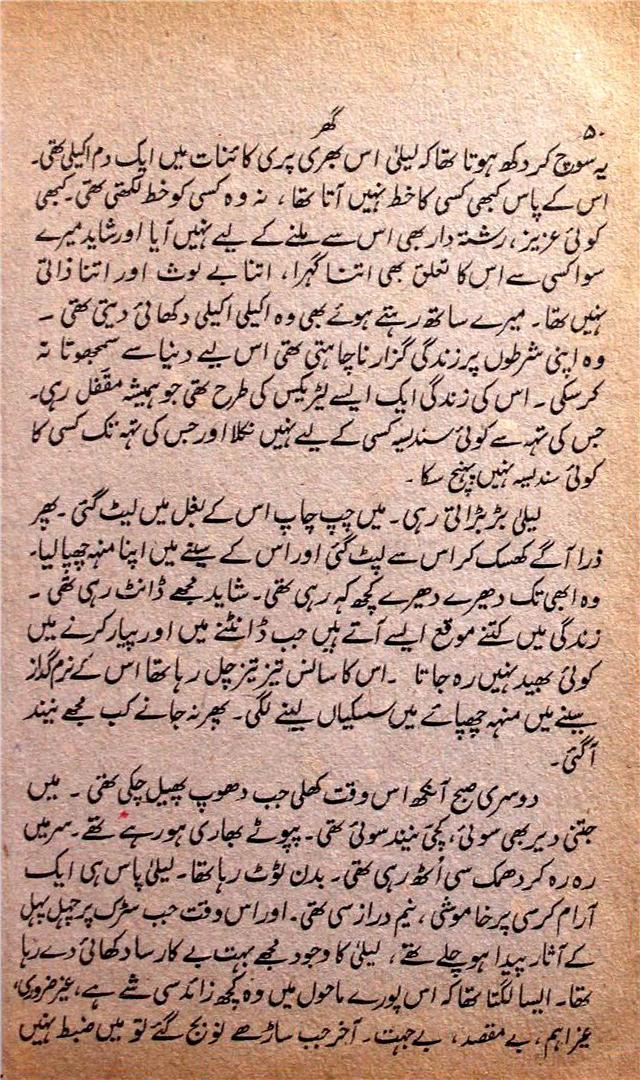 ۵۰
گھر
یہ سوچ کر دکھ ہوتا تھا کہ لیلیٰ اس بھری پری کائنات میں ایک دم اکیلی تھی۔
اس کے پاس کبھی کسی کا خط نہیں آتا تھا، نہ وہ کسی کو خط لکھتی تھی۔ کبھی
کوئی عزیز، رشتہ دار بھی اس سے ملنے کے لیے نہیں آیا اور شاید میرے
سوا کسی سے اس کا تعلق بھی اتنا گہرا، اتنا بے لوث اور اتنا ذاتی
نہیں تھا۔ میرے ساتھ رہتے ہوئے بھی وہ اکیلی اکیلی دکھائی دیتی تھی۔
وہ اپنی شرطوں پر زندگی گزارنا چاہتی تھی اس لیے دنیا سے سمجھوتا نہ
کر سکی۔ اس کی زندگی ایک ایسے لیٹر بکس کی طرح تھی جو ہمیشہ مقفّل رہی۔
جس کی تہہ سے کوئی سندیسہ کسی کے لیے نہیں نکلا اور جس کی تہہ تک کسی کا
کوئی سندیسہ نہیں پہنچ سکا۔
لیلیٰ بڑبڑاتی رہی۔ میں چپ چاپ اس کے بغل میں لیٹ گئی۔ پھر
ذرا آگے کھسک کر اس سے لپٹ گئی اور اس کے سینے میں اپنا منہہ چھپا لیا۔
وہ ابھی تک دھیرے دھیرے کچھ کہہ رہی تھی۔ شاید مجھے ڈانٹ رہی تھی۔
زندگی میں کتنے موقع ایسے آتے ہیں جب ڈانٹنے میں اور پیار کرنے میں
کوئی بھید نہیں رہ جاتا۔ اس کا سانس تیز تیز چل رہا تھا اس کے نرم گداز
سینے میں منہہ چھپائے میں سسکیاں لینے لگی۔ پھر نہ جانے کب مجھے نیند
آ گئی۔
دوسری صبح آنکھ اس وقت کھلی جب دھوپ پھیل چکی تھی۔ میں
جتنی دیر بھی سوئی، کچّی نیند سوئی تھی۔ پپوٹے بھاری ہو رہے تھے۔ سر میں
رہ رہ کر دھمک سی اُٹھ رہی تھی۔ بدن ٹوٹ رہا تھا۔ لیلیٰ پاس ہی ایک
آرام کرسی پر خاموشی، نیم دراز سی تھی۔ اور اس وقت جب سڑک پر چہل پہل
کے آثار پیدا ہو چلے تھے، لیلیٰ کا وجود مجھے بہت بے کار سا دکھائی دے رہا
تھا۔ ایسا لگتا تھا کہ اس پورے ماحول میں وہ کچھ زائد سی شے ہے، غیر ضروری،
غیر اہم، بے مقصد، بے جہت۔ آخر جب ساڑھے نو بج گئے تو میں ضبط نہیں